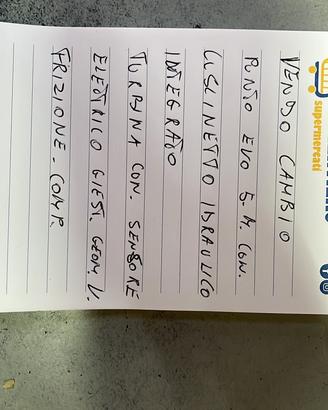 supermercati
VENDO CAMBIO
PUNTO EVO 5.M. CON.
CUSCINETTO IDRAULICO
INTEGRATO
TURBINA CON. SENSORE
ELETTRICO GEST. GEOM. V.
FRIZIONE. COMP.